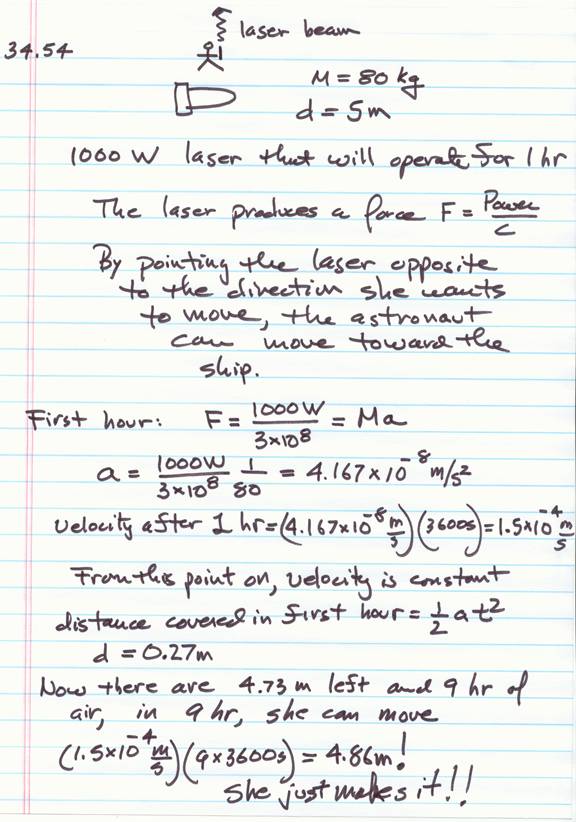 34.54
laser beam
M = 80 kg
d = 5m
1000 W laser that will operate for 1 hr
The laser produces a force F = Power/c
By pointing the laser opposite
to the direction she wants
to move, the astronaut
can move toward the
ship.
First hour: F = 1000W/3×10⁸ = Ma
a = 1000W/3×10⁸ 1/80 = 4.167×10⁻⁸ m/s²
velocity after 1 hr=(4.167×10⁻⁸ m/s)(3600s)=1.5×10⁻⁴ m/s
From this point on, velocity is constant
distance covered in first hour = ½ a t²
d = 0.27m
Now there are 4.73 m left and 9 hr of
air, in 9 hr, she can move
(1.5×10⁻⁴ m/s)(9×3600s) = 4.86m!
She just makes it!!